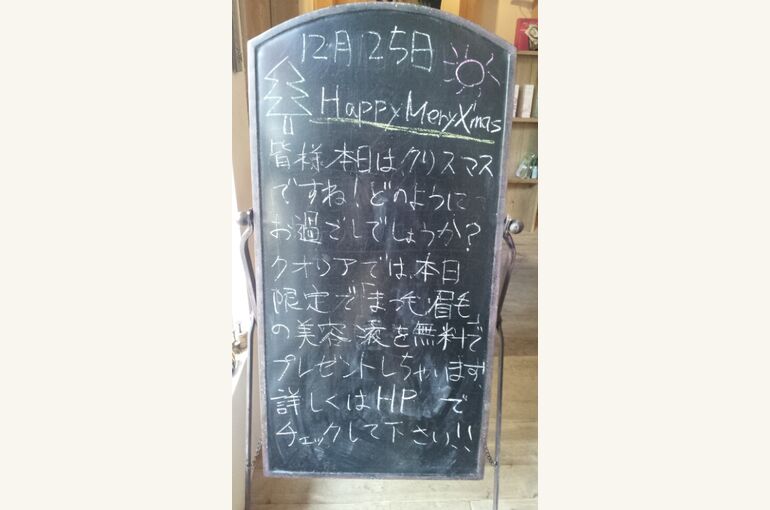 12月25日
Happy Mery X'mas
皆様本日はクリスマス
ですね!どのように
お過ごしでしょうか?
クオリアでは、本日
限定で「まつ毛眉毛」
の美容液を無料で
プレゼントしちゃいます。
詳しくはHPで
チェックして下さい!!